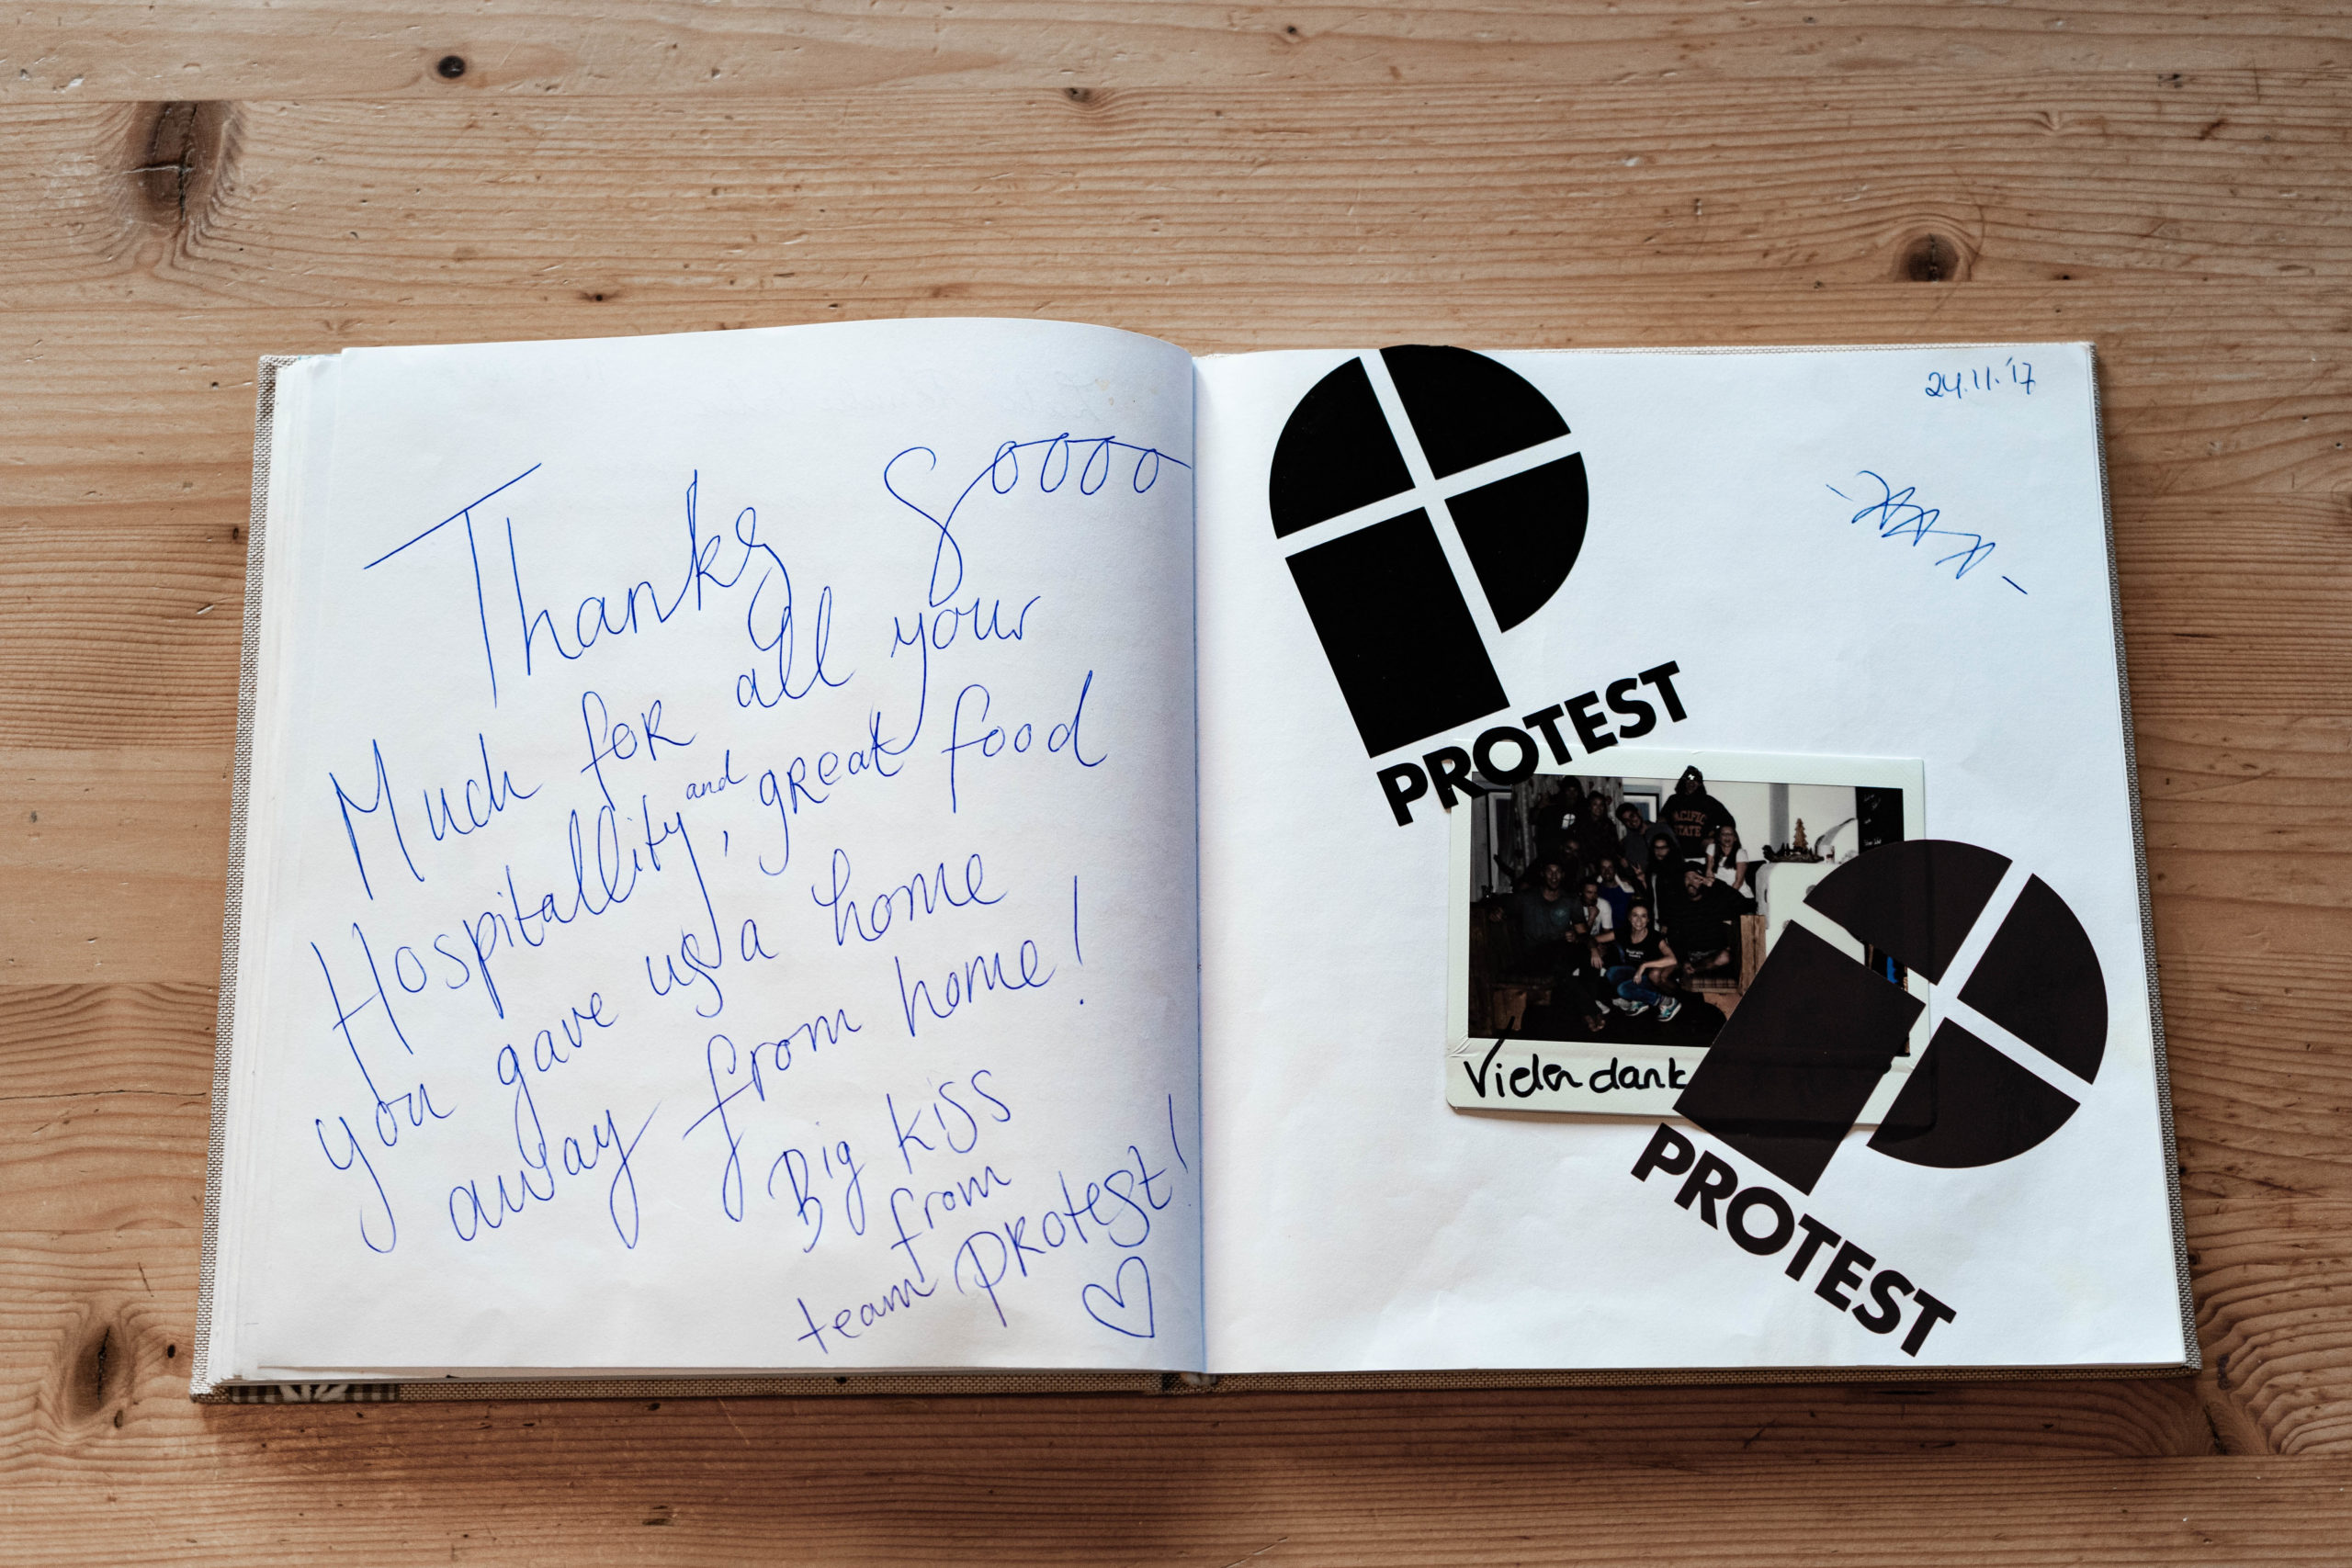 Thanks soooo
Much for all your
Hospitallity and, great food
you gave us a home
away from home!
Big kiss
from
team Protest!
24.11.'17
PROTEST
PACIFIC
STATE
Vielen dank
PROTEST